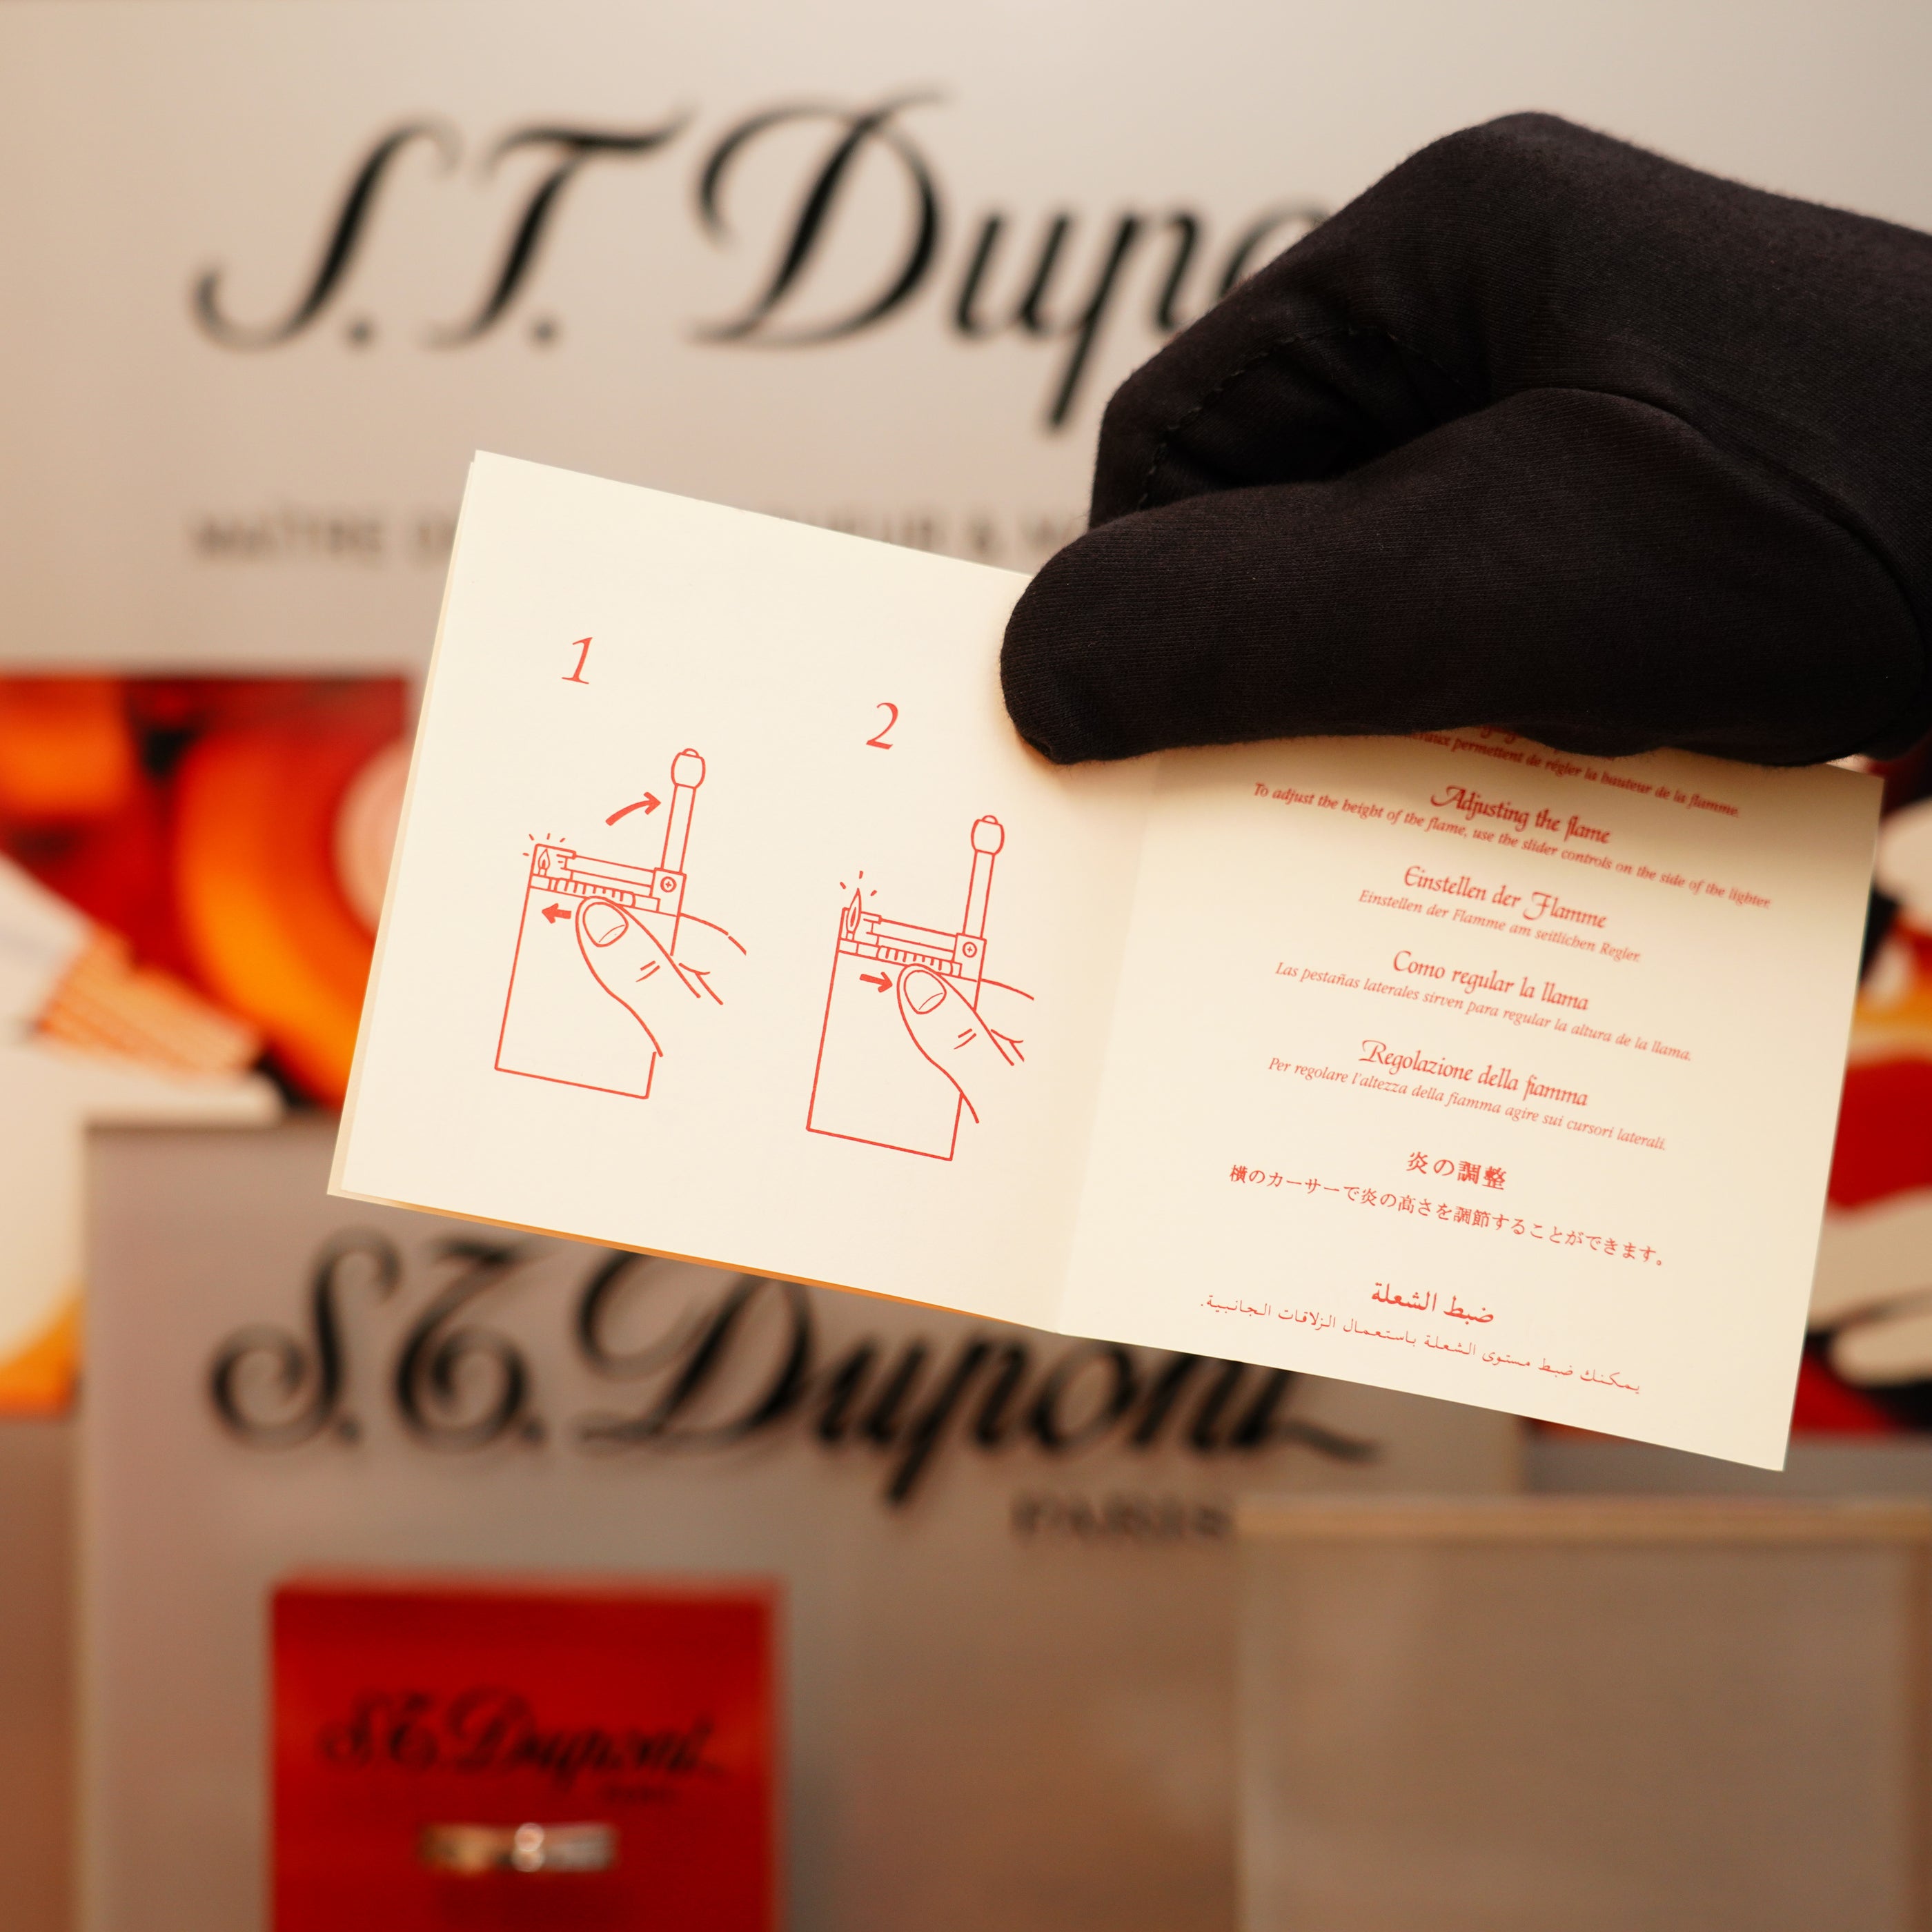 S.T. Dupo
MAÎTRE
1
2
permettent de régler la hauteur de la flamme.
Adjusting the flame
To adjust the height of the flame, use the slider controls on the side of the lighter.
Einstellen der Flamme
Einstellen der Flamme am seitlichen Regler.
Como regular la llama
Las pestañas laterales sirven para regular la altura de la llama.
Regolazione della fiamma
Per regolare l'altezza della fiamma agire sui cursori laterali.
炎の調整
横のカーサーで炎の高さを調節することができます。
ضبط الشعلة
يمكنك ضبط مستوى الشعلة باستعمال الزلاقات الجانبية.
S.T. Dupont
PARIS
S.T. Dupont